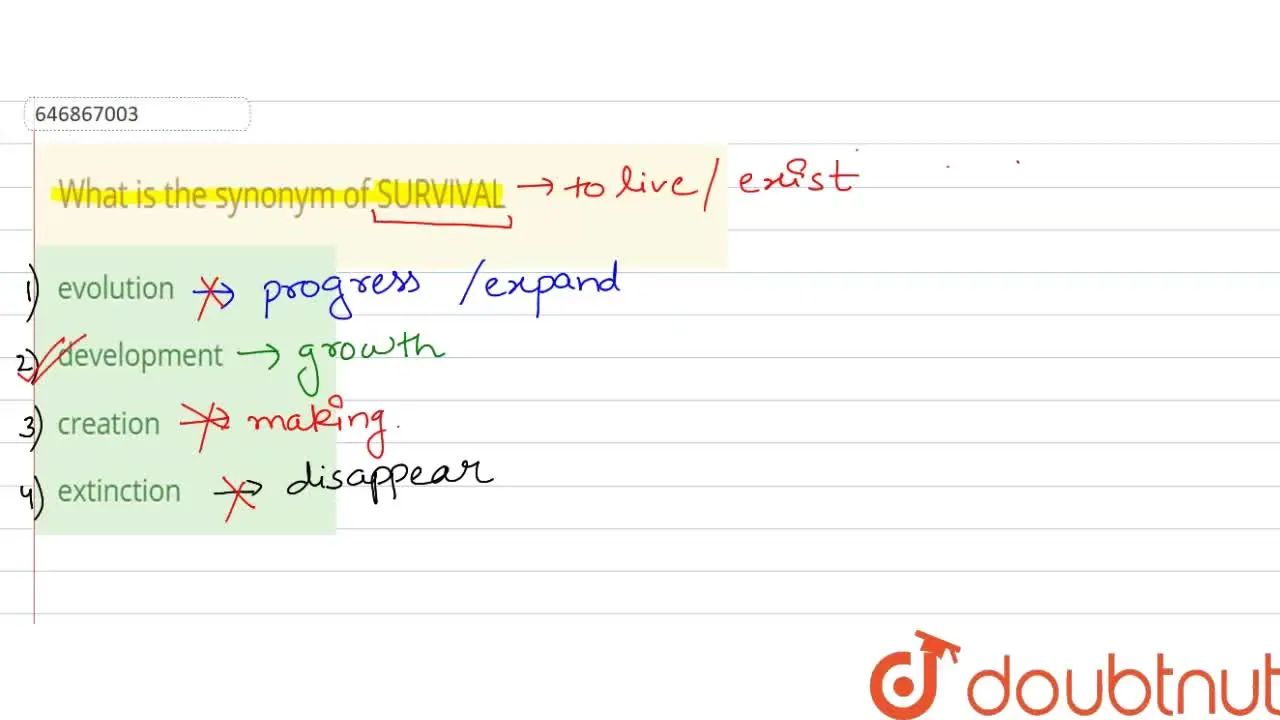 646867003
What is the synonym of SURVIVAL → to live / exist
1) evolution → progress / expand
2) development → growth
3) creation → making.
4) extinction → disappear
doubtnut